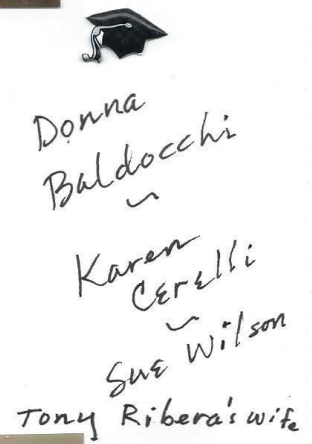 Donna
Baldocchi
~
Karen
Cerelli
~
Sue Wilson
Tony Ribera's wife